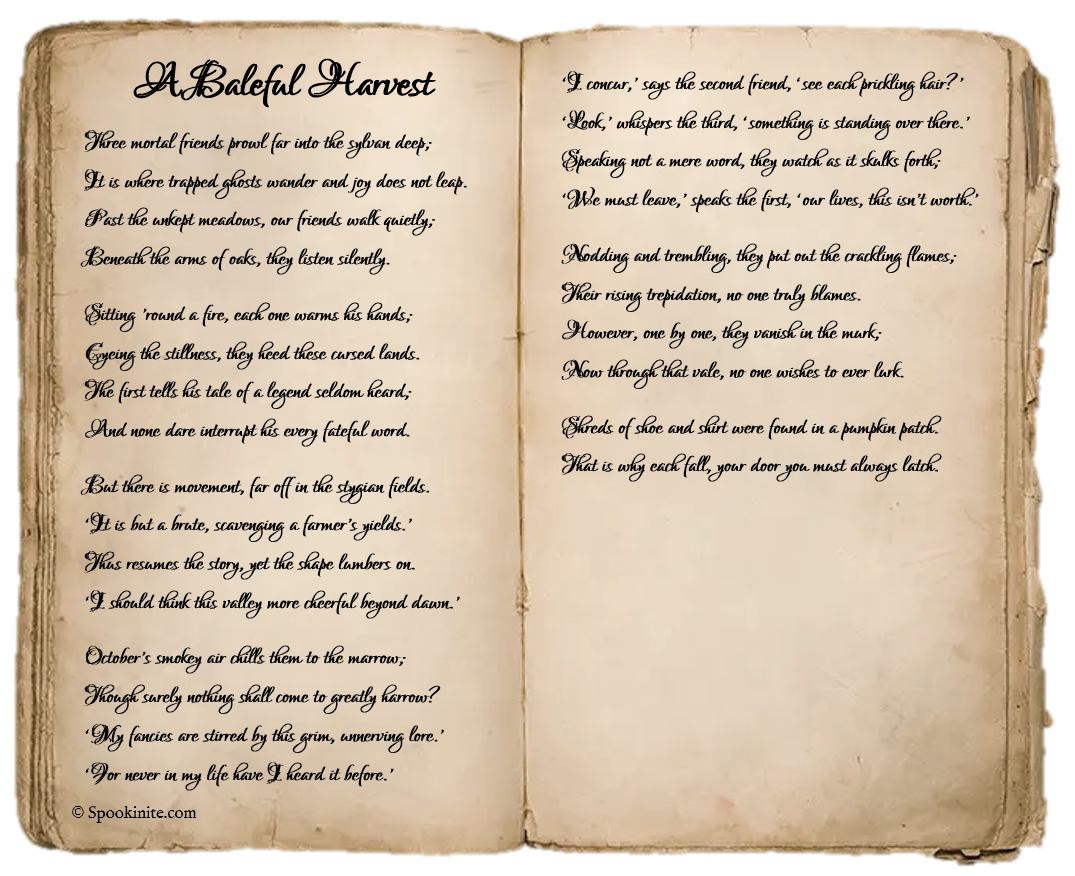 A Baleful Harvest
Three mortal friends prowl far into the sylvan deep;
It is where trapped ghosts wander and joy does not leap.
Past the unkept meadows, our friends walk quietly;
Beneath the arms of oaks, they listen silently.
Sitting 'round a fire, each one warms his hands;
Eyeing the stillness, they heed these cursed lands.
The first tells his tale of a legend seldom heard;
And none dare interrupt his every fateful word.
But there is movement, far off in the stygian fields.
'It is but a brute, scavenging a farmer's yields.'
Thus resumes the story, yet the shape lumbers on.
'I should think this valley more cheerful beyond dawn.'
October's smokey air chills them to the marrow;
Though surely nothing shall come to greatly harrow?
'My fancies are stirred by this grim, unnerving lore.'
'For never in my life have I heard it before.'
© Spookinite.com
'I concur,' says the second friend, 'see each prickling hair?'
'Look,' whispers the third, 'something is standing over there.'
Speaking not a mere word, they watch as it skulks forth;
'We must leave,' speaks the first, 'our lives, this isn't worth.'
Nodding and trembling, they put out the crackling flames;
Their rising trepidation, no one truly blames.
However, one by one, they vanish in the murk;
Now through that vale, no one wishes to ever lurk.
Shreds of shoe and shirt were found in a pumpkin patch.
That is why each fall, your door you must always latch.